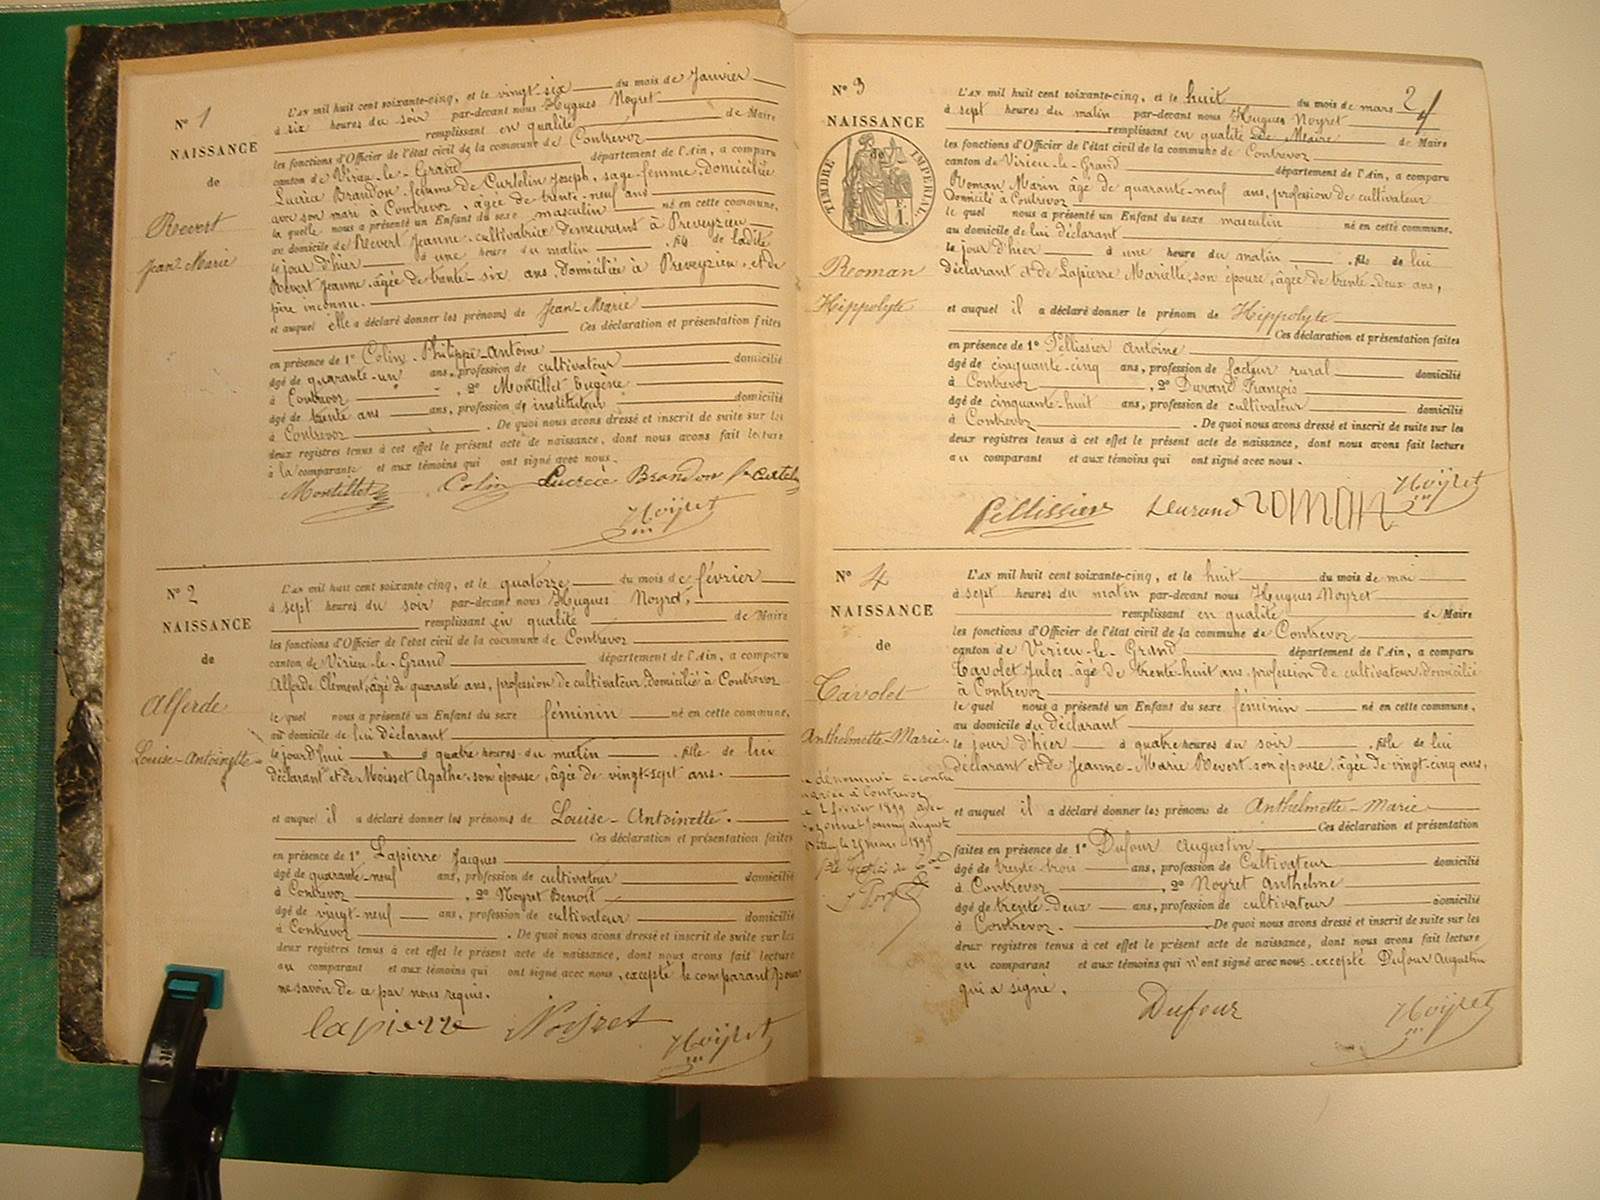 N° 1
NAISSANCE
de
Revert
Jean-Marie
L'AN mil huit cent soixante-cinq, et le vingt-six du mois de Janvier
à six heures du soir par-devant nous Hugues Noyret
remplissant en qualité de Maire
les fonctions d'Officier de l'état civil de la commune de Contrevoz
canton de Virieu-le-Grand département de l'Ain, a comparu
Lucrèce Brandon femme de Curtelin Joseph, sage-femme, domiciliée
avec son mari à Contrevoz, âgée de trente-neuf ans
la quelle nous a présenté un Enfant du sexe masculin né en cette commune,
au domicile de Revert Jeanne, cultivatrice demeurant à Preveyzieu
le jour d'hier à une heure du matin, fils de ladite
Revert Jeanne, âgée de trente-six ans, domiciliée à Preveyzieu, et de
père inconnu.
et auquel elle a déclaré donner les prénoms de Jean-Marie
Ces déclaration et présentation faites
en présence de 1° Colin Philippe-Antoine
âgé de quarante-un ans, profession de cultivateur domicilié
à Contrevoz, 2° Montillet Eugène
âgé de trente ans ans, profession d'instituteur domicilié
à Contrevoz. De quoi nous avons dressé et inscrit de suite sur les
deux registres tenus à cet effet le présent acte de naissance, dont nous avons fait lecture
à la comparante et aux témoins qui ont signé avec nous.
Montillet Colin Lucrèce Brandon fe Curtelin
Noyret
N° 2
NAISSANCE
de
Alferde
Louise-Antoinette
L'AN mil huit cent soixante-cinq, et le quatorze du mois de février
à sept heures du soir par-devant nous Hugues Noyret,
remplissant en qualité de Maire
les fonctions d'Officier de l'état civil de la commune de Contrevoz
canton de Virieu-le-Grand département de l'Ain, a comparu
Alferde Clément, âgé de quarante ans, profession de cultivateur, domicilié à Contrevoz
le quel nous a présenté un Enfant du sexe féminin né en cette commune,
au domicile de lui déclarant
le jourd'hui à quatre heures du matin, fille de lui
déclarant et de Moisset Agathe, son épouse, âgée de vingt-sept ans.
et auquel il a déclaré donner les prénoms de Louise-Antoinette.
Ces déclaration et présentation faites
en présence de 1° Lapierre Jacques
âgé de quarante-neuf ans, profession de cultivateur domicilié
à Contrevoz, 2° Noyret Benoît
âgé de vingt-neuf ans, profession de cultivateur domicilié
à Contrevoz. De quoi nous avons dressé et inscrit de suite sur les
deux registres tenus à cet effet le présent acte de naissance, dont nous avons fait lecture
au comparant et aux témoins qui ont signé avec nous, excepté le comparant pour
ne savoir de ce par nous requis.
lapierre Noyret Noyret
2
N° 3
NAISSANCE
de
TIMBRE IMPERIAL
F. 1.
Roman
Hippolyte
L'AN mil huit cent soixante-cinq, et le huit du mois de mars
à sept heures du matin par-devant nous Hugues Noyret
remplissant en qualité de Maire de Maire
les fonctions d'Officier de l'état civil de la commune de Contrevoz
canton de Virieu-le-Grand département de l'Ain, a comparu
Roman Marin âgé de quarante-neuf ans, profession de cultivateur
Domicilié à Contrevoz
le quel nous a présenté un Enfant du sexe masculin né en cette commune,
au domicile de lui déclarant
le jour d'hier à une heure du matin, fils de lui
déclarant et de Lapierre Mariette, son épouse, âgée de trente-deux ans,
et auquel il a déclaré donner le prénom de Hippolyte
Ces déclaration et présentation faites
en présence de 1° Pellissier Antoine
âgé de cinquante-cinq ans, profession de facteur rural domicilié
à Contrevoz, 2° Durand François
âgé de cinquante-huit ans, profession de cultivateur domicilié
à Contrevoz. De quoi nous avons dressé et inscrit de suite sur les
deux registres tenus à cet effet le présent acte de naissance, dont nous avons fait lecture
au comparant et aux témoins qui ont signé avec nous.
Pellissier Durand roman Noyret
N° 4
NAISSANCE
de
Tavolet
Anthelmette-Marie.
mariée à Contrevoz
le 2 février 1899 avec
Joanny Auguste
le 25 mars 1899
L'AN mil huit cent soixante-cinq, et le huit du mois de mai
à sept heures du matin par-devant nous Hugues Noyret
remplissant en qualité de Maire
les fonctions d'Officier de l'état civil de la commune de Contrevoz
canton de Virieu-le-Grand département de l'Ain, a comparu
Tavolet Jules, âgé de trente-huit ans, profession de cultivateur, domicilié
à Contrevoz
le quel nous a présenté un Enfant du sexe féminin né en cette commune,
au domicile du déclarant
le jour d'hier à quatre heures du soir, fille de lui
déclarant et de Jeanne-Marie Revert son épouse, âgée de vingt-cinq ans,
et auquel il a déclaré donner les prénoms de Anthelmette-Marie
Ces déclaration et présentation
faites en présence de 1° Dufour Augustin
âgé de trente-trois ans, profession de Cultivateur domicilié
à Contrevoz, 2° Noyret Anthelme
âgé de trente-deux ans, profession de cultivateur domicilié
à Contrevoz. De quoi nous avons dressé et inscrit de suite sur les
deux registres tenus à cet effet le présent acte de naissance, dont nous avons fait lecture
au comparant et aux témoins qui n'ont signé avec nous excepté Dufour Augustin
qui a signé.
Dufour Noyret